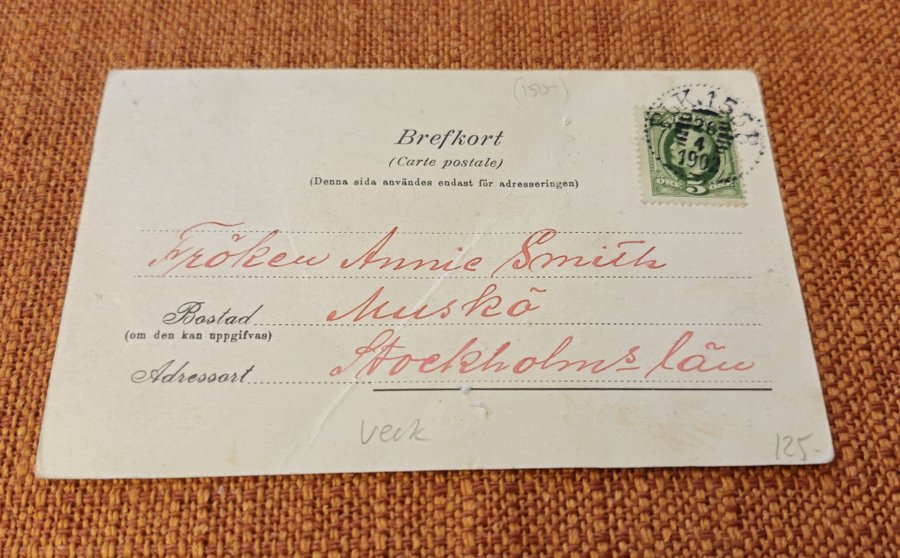 (150-)
PLK.1551
26
4
190
5
Brefkort
(Carte postale)
(Denna sida användes endast för adresseringen)
Fröken Annie Smith
Bostad Muskö
(om den kan uppgifvas)
Adressort Stockholms län
veck
125-